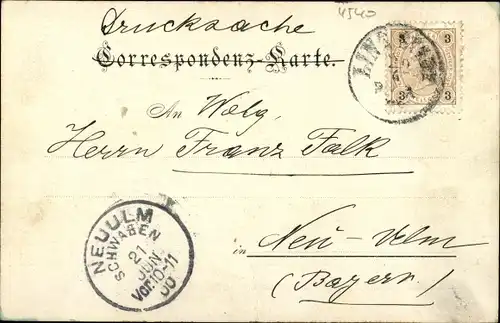 4540
Drucksache
Correspondenz-Karte.
3 3
3 3
LINZ
An Wolg.
Herrn Franz Falk
in Neu-Ulm
(Bayern)
NEUULM
SCHWABEN
21
JUN
Vor. 10-11
00